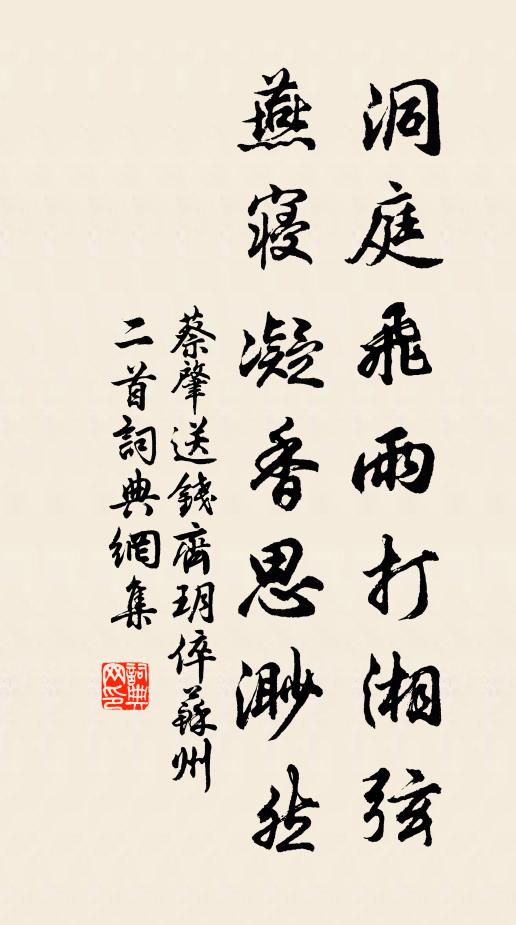 洞庭飛雨打湘弦
燕寢凝香思渺然
蔡肇送錢齊玥倅蘇州
二首詞典網集
詞典
网印